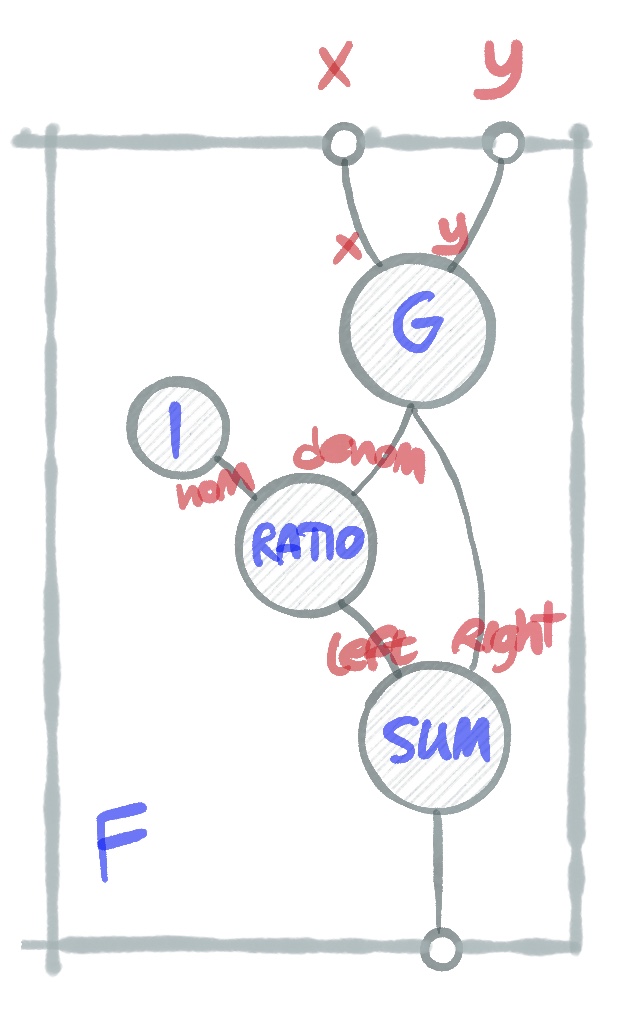 x y
x y
G
1
nom denom
RATIO
Left Right
SUM
F